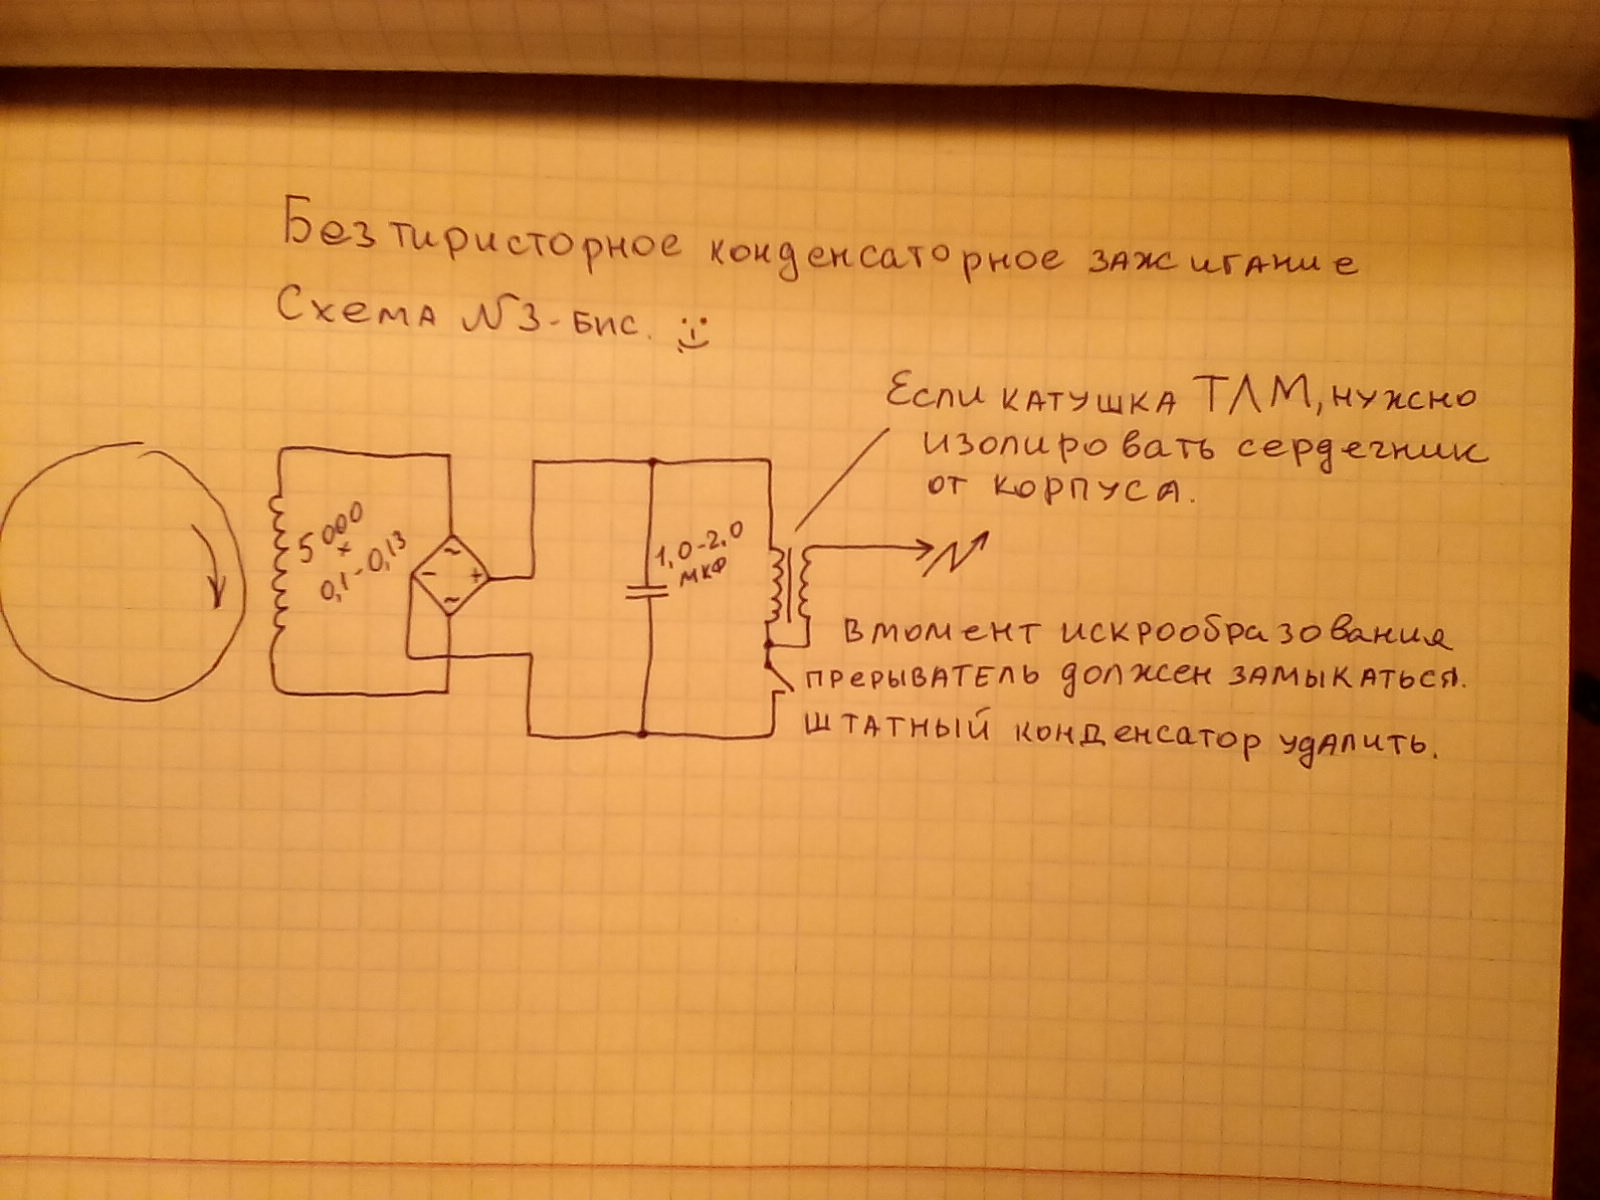 Безтиристорное конденсаторное зажигание
Схема N3-бис.
Если катушка ТЛМ, нужно
изолировать сердечник
от корпуса.
5000
×
0,1-0,13
~
- +
~
1,0-2,0
мкф
В момент искрообразования
прерыватель должен замыкаться.
штатный конденсатор удалить.